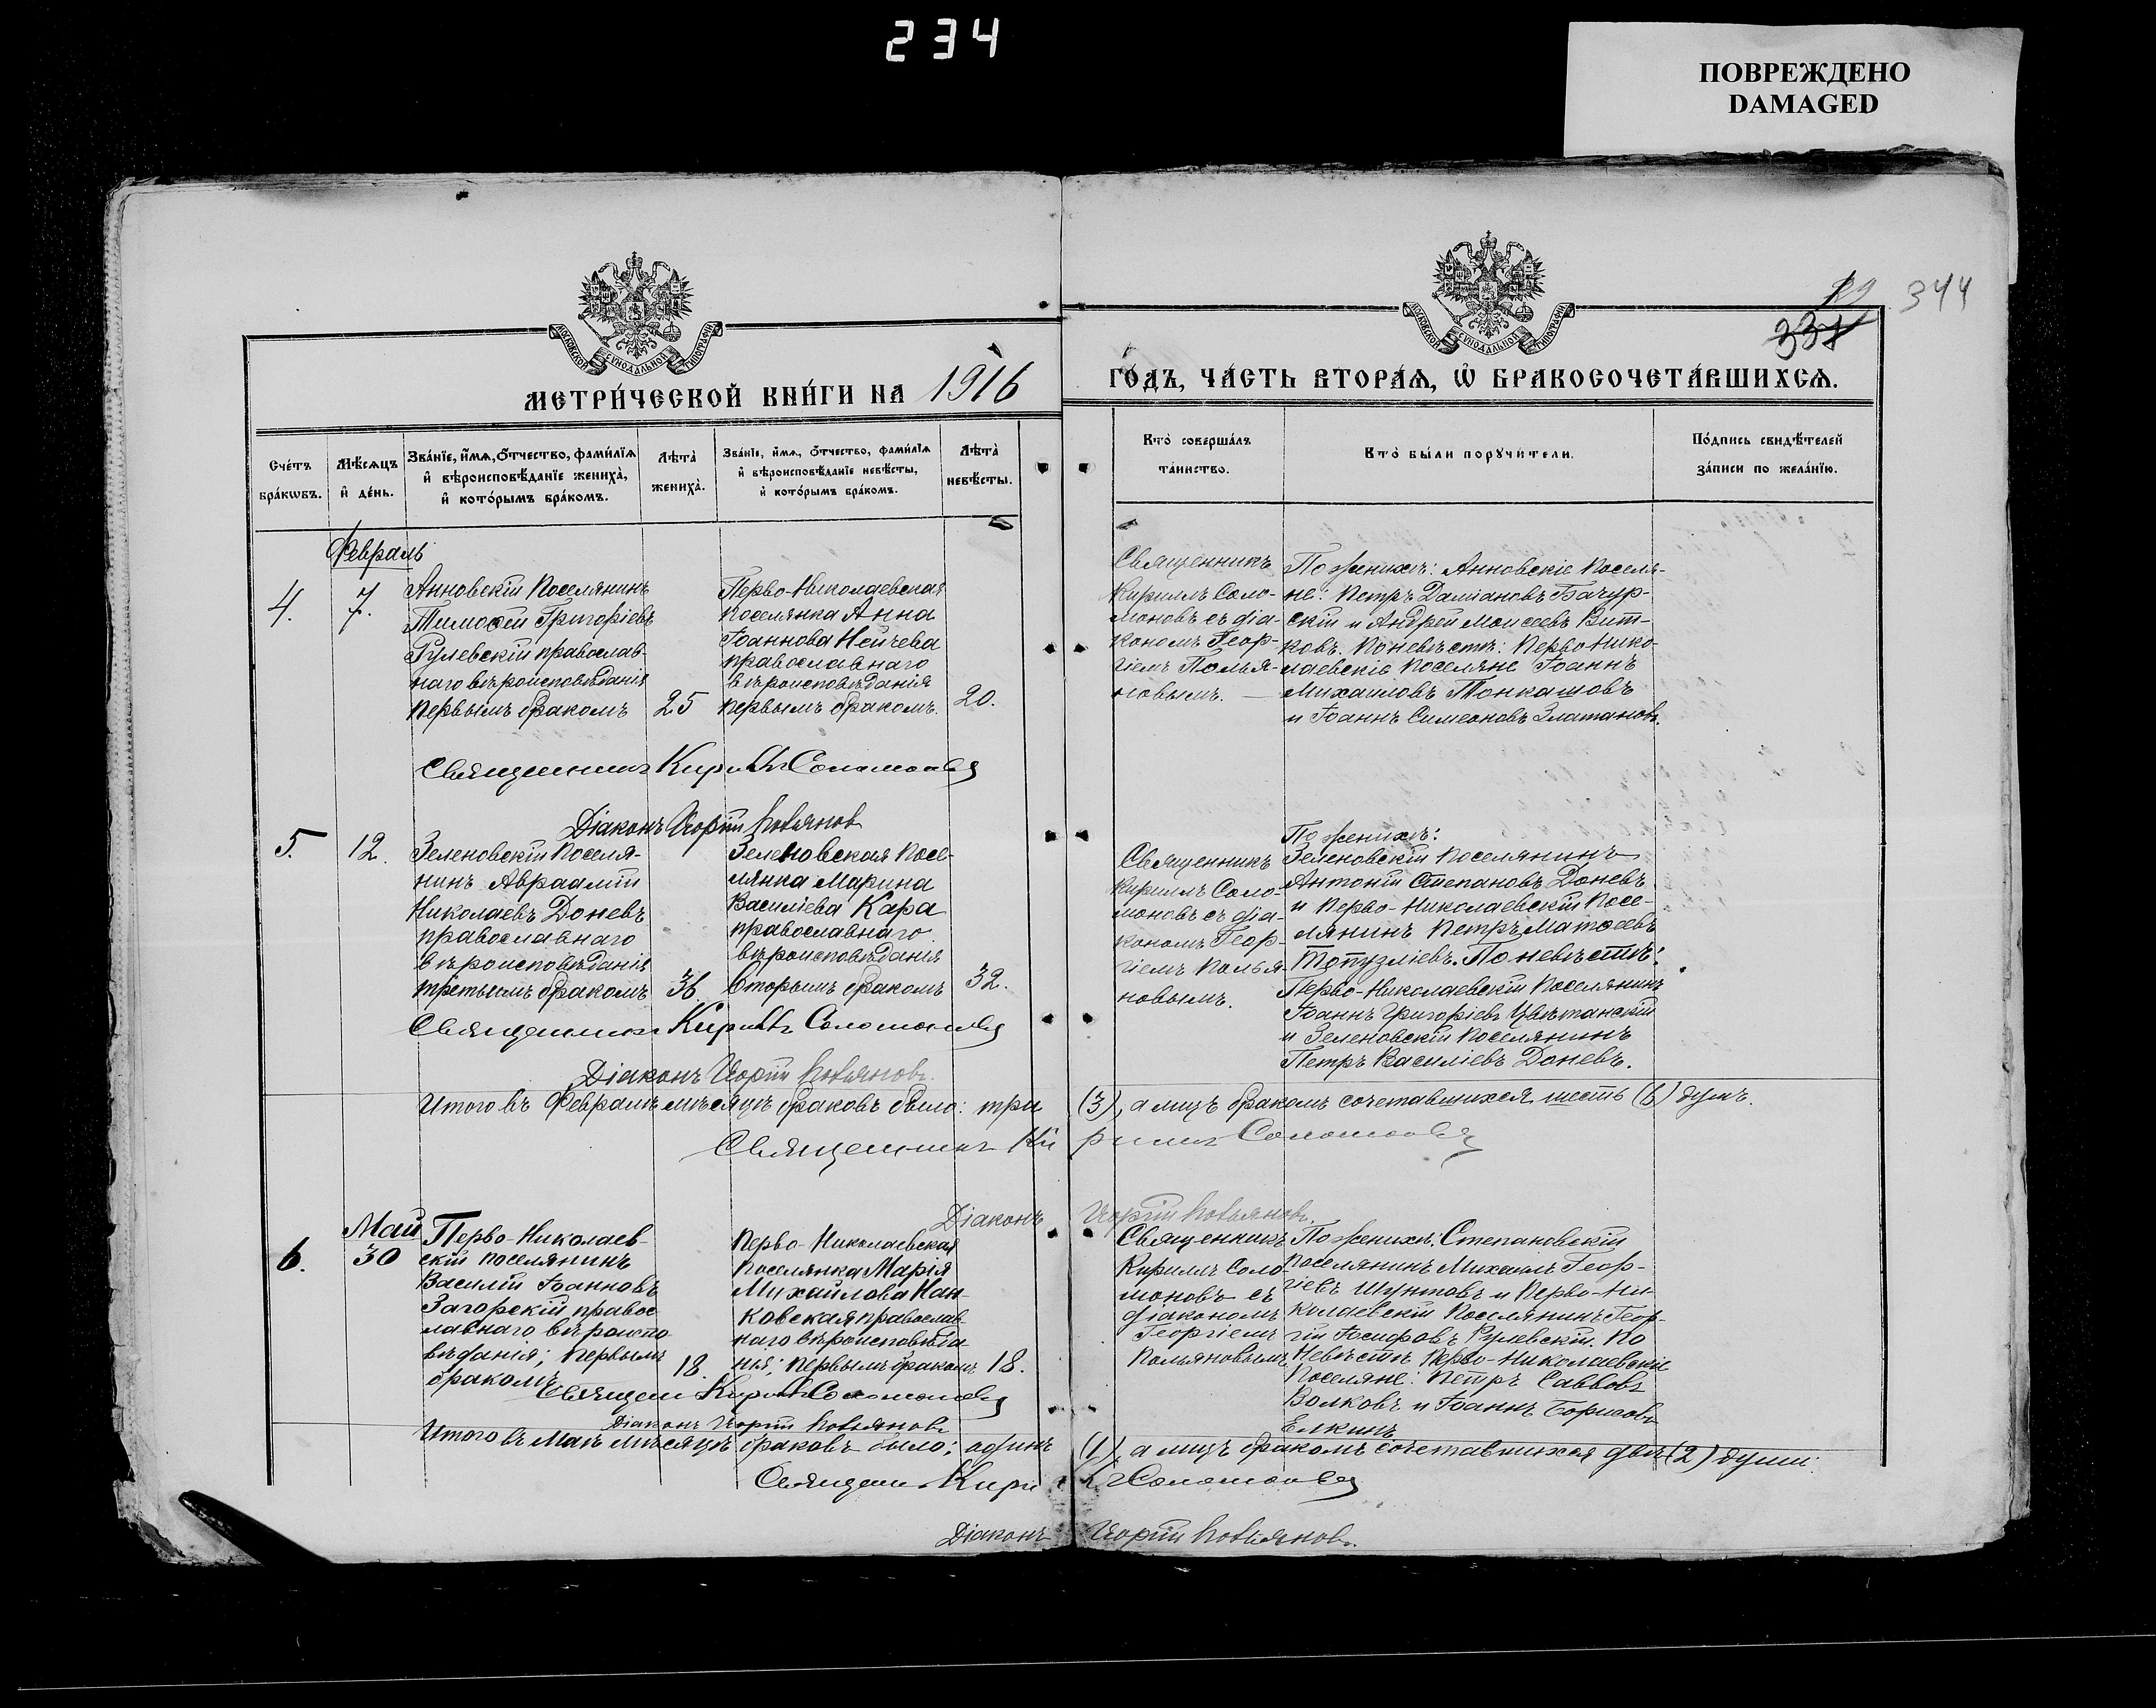 234
ПОВРЕЖДЕНО
DAMAGED
89
344
331
МОСКОВСКОЙ СѴНОДАЛЬНОЙ ТИПОГРАФІИ
МОСКОВСКОЙ СѴНОДАЛЬНОЙ ТИПОГРАФІИ
МЕТРИ́ЧЕСКОЙ КНИ́ГИ НА 1916
ГО́ДЪ, ЧА́СТЬ ВТОРА́Ѧ, Ѡ҆ БРАКОСОЧЕТА́ВШИХСѦ.
Сче́тъ
бра́кѡвъ.
Мѣ́сѧцъ
и҆ де́нь.
Зва́нїе, и҆́мѧ, о҆́тчество, фами́лїѧ
и҆ вѣроисповѣ́данїе жениха̀,
и҆ кото́рымъ бра́комъ.
Лѣта̀
жениха̀.
Зва́нїе, и҆́мѧ, о҆́тчество, фами́лїѧ
и҆ вѣроисповѣ́данїе невѣ́сты,
и҆ кото́рымъ бра́комъ.
Лѣта̀
невѣ́сты.
Кто̀ соверша́лъ
та́инство.
Кто̀ бы́ли порꙋчи́тели.
По́дпись свидѣ́телей
за́писи по жела́нїю.
Февраль
4.
7.
Анновскій поселянинъ
Тимоѳей Григоріевъ
Гулевскій православ-
наго вѣроисповѣданія
первымъ бракомъ
25
Перво-Николаевская
поселянка Анна
Іоаннова Нейчева
православнаго
вѣроисповѣданія
первымъ бракомъ.
20.
Священникъ
Кириллъ Соло-
моновъ съ діа-
кономъ Геор-
гіемъ Полья-
новымъ. —
По женихѣ: Анновскіе поселя-
не: Петръ Даміановъ Бачур-
скій и Андрей Моисеевъ Вит-
ковъ. По невѣстѣ: Перво Нико-
лаевскіе поселяне Іоаннъ
Михаиловъ Тонкашовъ
и Іоаннъ Симеоновъ Златановъ.
Священникъ Кириллъ Соломоновъ
Діаконъ Георгій Польяновъ
5.
12.
Зеленовскій поселя-
нинъ Авраамій
Николаевъ Доневъ
православнаго
вѣроисповѣданія
третьимъ бракомъ
36.
Зеленовская посе-
лянка Марина
Василіева Кара
православнаго
вѣроисповѣданія
вторымъ бракомъ
32.
Священникъ
Кириллъ Соло-
моновъ съ діа-
кономъ Геор-
гіемъ Полья-
новымъ.
По женихѣ:
Зеленовскій поселянинъ
Антоній Степановъ Доневъ
и Перво-Николаевскій посе-
лянинъ Петръ Матѳеевъ
Топузліевъ. По невѣстѣ:
Перво-Николаевскій поселянинъ
Іоаннъ Григоріевъ Цвѣтанскій
и Зеленовскій поселянинъ
Петръ Василіевъ Доневъ.
Священникъ Кириллъ Соломоновъ
Діаконъ Георгій Польяновъ.
Итого въ Февралѣ мѣсяцѣ браковъ было: три (3), а лицъ бракомъ сочетавшихся шесть (6) душъ.
Священникъ Кириллъ Соломоновъ
Діаконъ Георгій Польяновъ.
Май
6.
30
Перво-Николаев-
скій поселянинъ
Василій Іоанновъ
Загорскій правос-
лавнаго вѣроиспо-
вѣданія; первымъ
бракомъ
18.
Перво-Николаевская
поселянка Марія
Михайлова Нан-
ковская православ-
наго вѣроисповѣда-
нія; первымъ бракомъ
18.
Священникъ
Кириллъ Соло-
моновъ съ
діакономъ
Георгіемъ
Польяновымъ
По женихѣ. Степановскій
поселянинъ Михаилъ Геор-
гіевъ Шунтовъ и Перво-Ни-
колаевскій поселянинъ Геор-
гій Іосифовъ Гулевскій. По
невѣстѣ Перво-Николаевскіе
поселяне: Петръ Саввовъ
Волковъ и Іоаннъ Борисовъ
Елкинъ
Священ. Кириллъ Соломоновъ
Діаконъ Георгій Польяновъ
Итого въ Маѣ мѣсяцѣ браковъ было; одинъ (1), а лицъ бракомъ сочетавшихся двѣ (2) души.
Священ. Кириллъ Соломоновъ
Діаконъ Георгій Польяновъ.